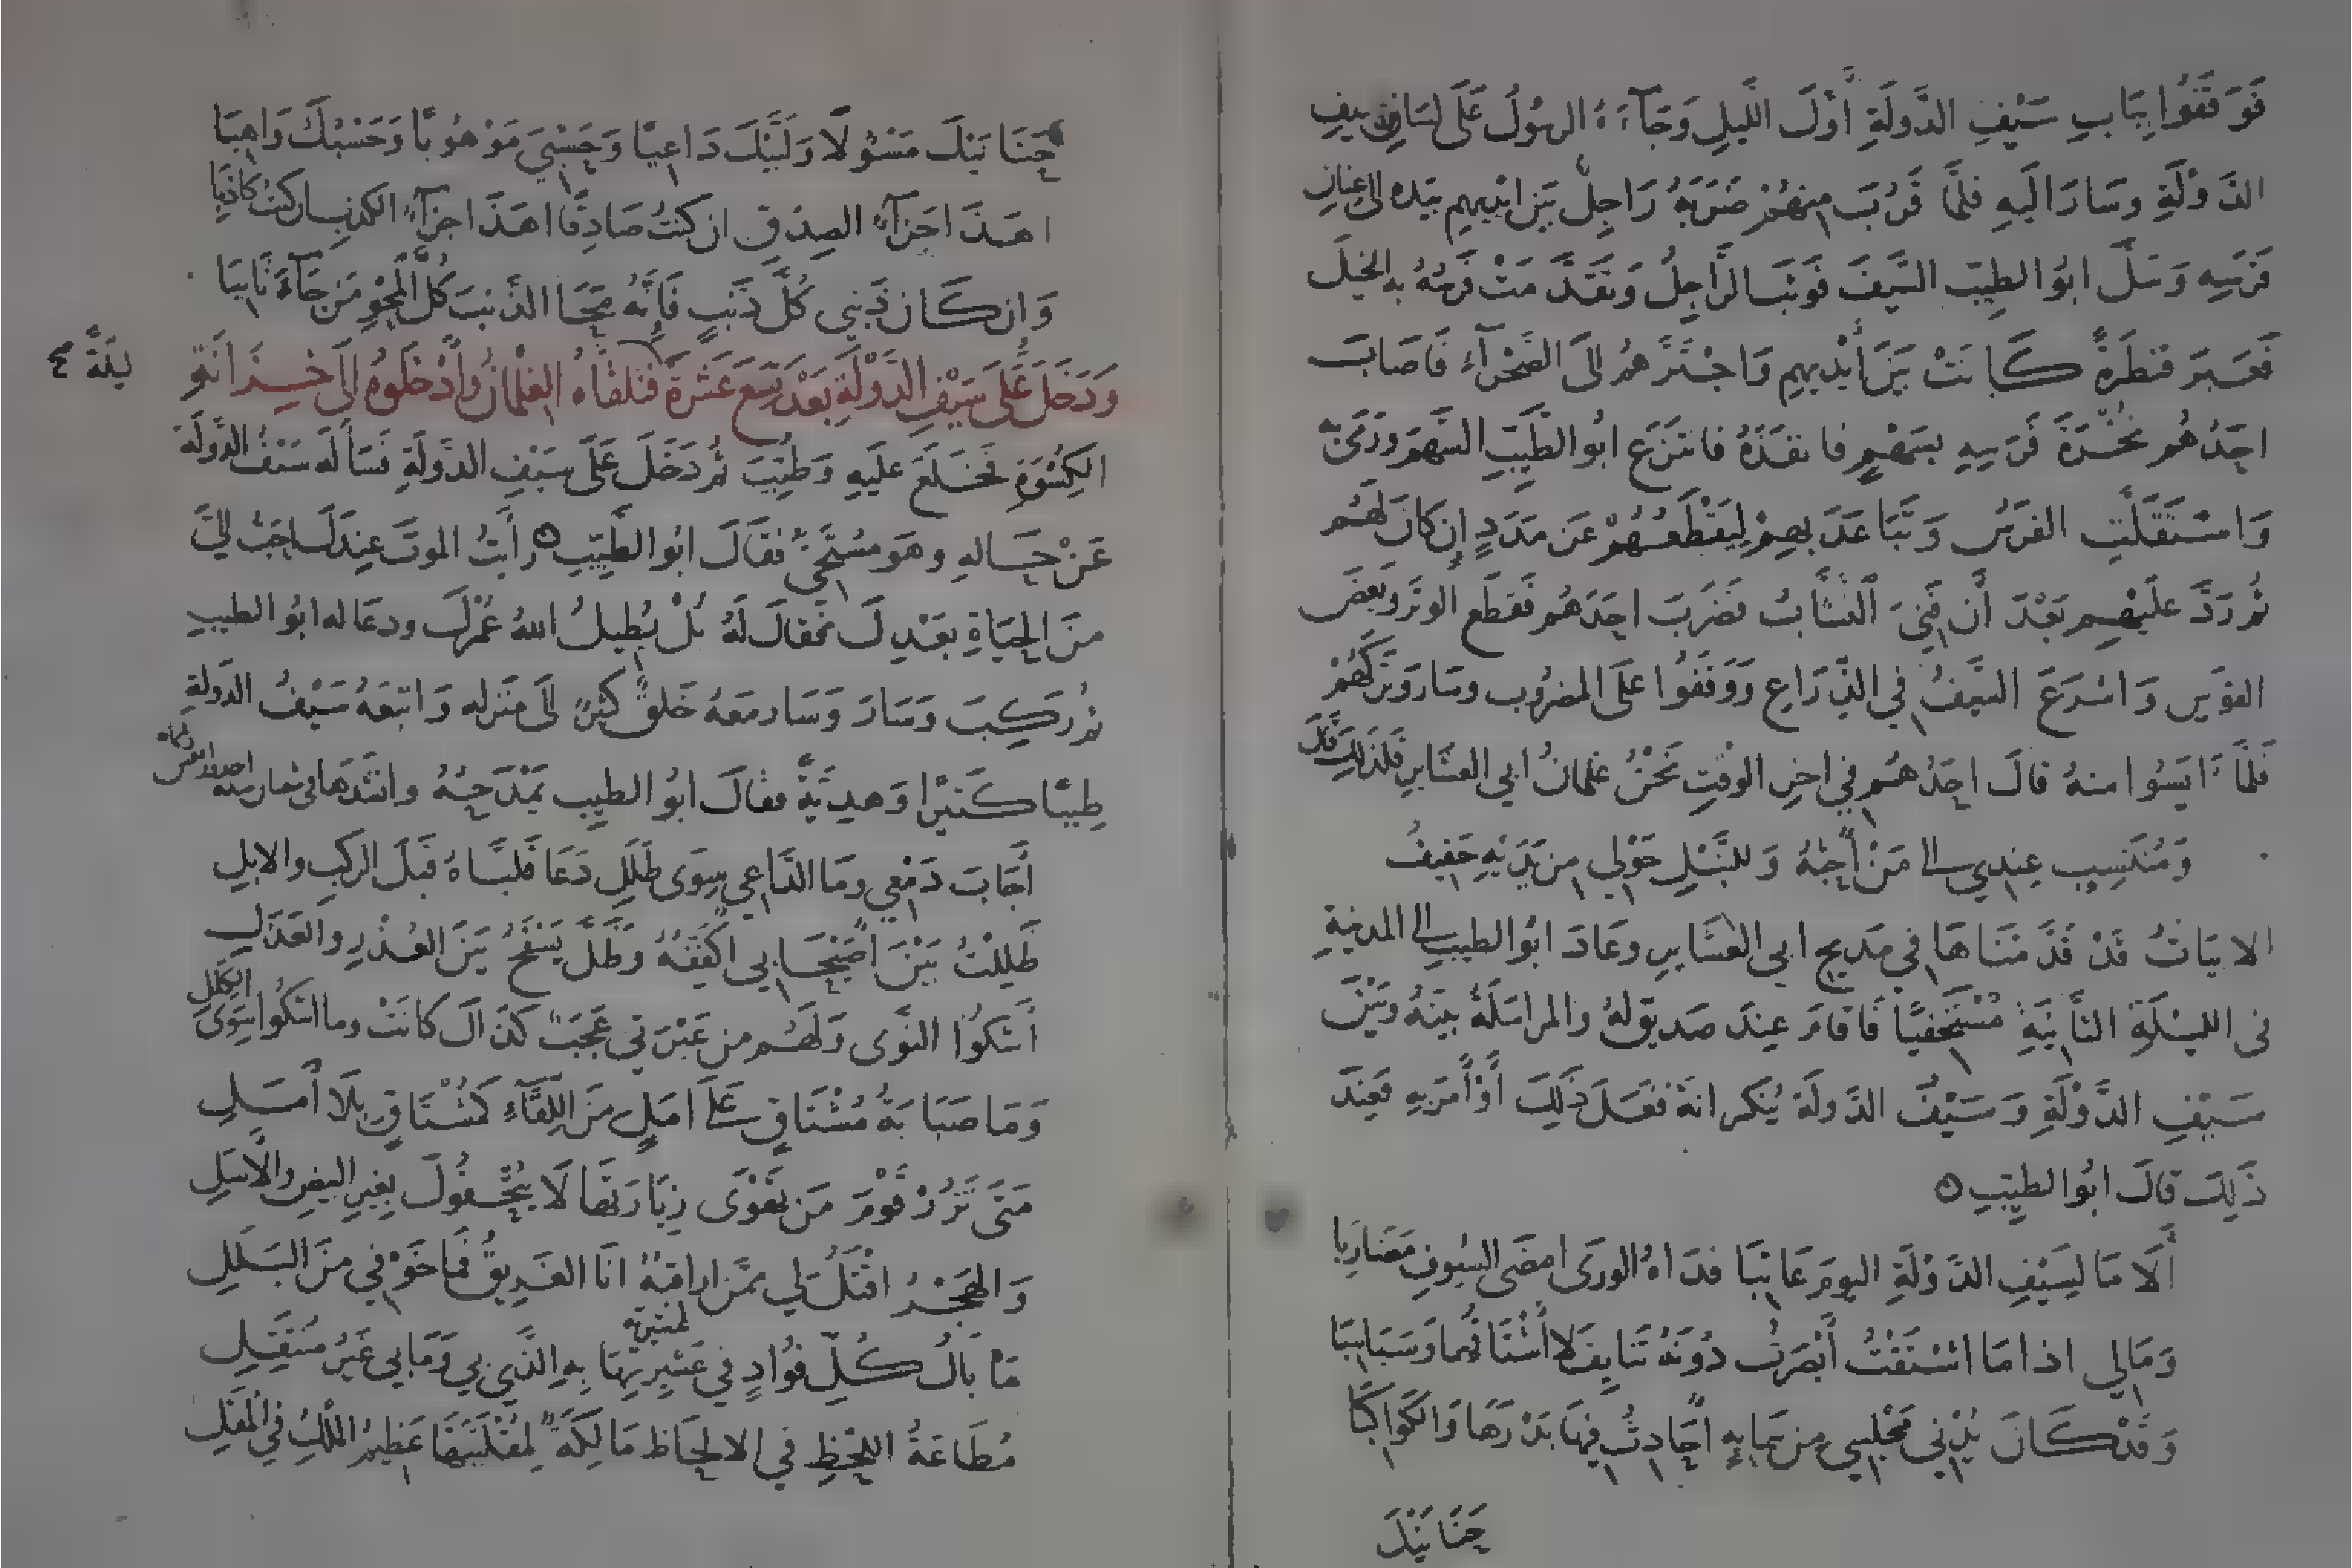 فَوَقَفُوا بِبَابِ سَيْفِ الدَّوْلَةِ أَوَّلَ اللَّيلِ وَجَآءَهُ الرسُولُ عَلَى لسَانِ سَيفِ
الدَّوْلَةِ وسَارَ الَيهِ فلمَّا قَرُبَ منهُمْ ضَرَبَهُ رَاجِلٌ بَيْنَ ايْديهِم بيَده الى عِنانِ
فَرَسِه وَسَلَّ ابُو الطيّب السَّيفَ فَوثَبَ الرَّاجِلُ وَتَقَدَّمَتْ فَرسُهُ به الخيلَ
فَعَبَرَ قنطَرةً كَانَتْ بَيْنَ أَيْديهِم وَاجْتَرَّهمُ الَى الصَّحْرَآءِ فَاصَابَ
احَدُهُم نَحْرَةَ فَرَسِهِ بسَهْمٍ فانفَذَهُ فانتَزعَ ابُو الطَّيّبِ السَّهمَ وَرَمَى بِه
وَاستَقَلَّتِ الفَرسُ وَتَبَاعَدَ بهِمْ لِيَقْطَعَهُمْ عَن مَدَدٍ إِن كانَ لَهُم
ثُم رَدَّ عَلَيْهِم بَعْدَ أَن فَنِيَ النُّشَّابُ فضَرَبَ احَدَهُم فقَطَعَ الوَتَر وَبَعْضَ
القَوسِ وَاسْرَعَ السَّيفُ فِي الذّرَاعِ وَوَقَفُوا عَلَى المضرُوب وسَارَ وَتَركَهُمْ
فَلمَّا ايسُوا منهُ قالَ احَدُهُم فِي اخرِ الوقتِ نَحْنُ غلمَانُ ابي العشَاير فَلذلِكَ قَالَ
وَمُنتَسِبٍ عِندِي الى مَنْ أُحِبُّهُ وَللنَّبْلِ حَوْلِي مِن يَدَيْهِ حَفِيفُ
الابيَاتُ قَدْ قَدَّمْنَاهَا فِي مَديحِ ابي العشَايرِ وعَادَ ابُو الطيبِ الى المدينَةِ
في الليْلَةِ الثَّانيَةِ مُسْتَخْفيًا فَاقامَ عِندَ صَديقٍ لهُ والمراسَلَةُ بينَهُ وَبَيْنَ
سَيْفِ الدَّوْلَةِ وَسَيْفُ الدَّولَة يُنكر انهُ فَعَلَ ذَلِكَ أَوْ أَمَرَ بهِ فعِندَ
ذَلِكَ قالَ ابُو الطيّبِ
أَلَا مَا لسَيْفِ الدَّوْلَةِ اليومَ عَاتِبَا فدَاهُ الورَى امضَى السُّيوفِ مضَارِبَا
وَمَالِي اذا مَا اشْتَقْتُ أَبْصَرتُ دُونَهُ تَنَايِفَ لا أَشْتَاقُهَا وَسَبَاسِبَا
وَقَدْ كَانَ يُدْنِي مَجْلِسِي مِن سَمَايِهِ أُحَادِثُ فيهَا بَدْرَهَا وَالكَوَاكبَا
حَنَانَيْكَ
حَنَانَيْكَ مَسْؤُولًا وَلَبَّيْكَ دَاعِيًا وَحَسْبِيَ مَوْهُوبًا وَحَسْبُكَ وَاهِبَا
اهَذَا جَزآءُ الصِدْقِ ان كنتُ صَادِقًا اهَذَا جزآءُ الكذبِ ان كنتُ كَاذِبَا
وَان كَانَ ذَنبي كُلَّ ذَنْبٍ فَإِنَّهُ مَحَا الذَّنبَ كُلَّ المَحْوِ مَن جَآءَ تَايِبَا
وَدَخَلَ عَلَى سَيْفِ الدَّوْلَةِ بَعْدَ تِسْعَ عَشرَةَ فتلقَّاهُ الغِلْمَانُ وَأَدْخَلُوهُ الَى خِزَانَةِ
ليلَةً
الكِسْوَةِ فَخَلَعَ عليهِ وَطُيِّبَ ثُم دَخَلَ عَلَى سَيْفِ الدَّوْلَةِ فَسَأَلَهُ سَيْفُ الدَّولَة
عَنْ حَالهِ وهوَ مُسْتَحْيٍ فقالَ ابُو الطَّيّبِ رأيتُ الموتَ عِندَكَ احَبَّ الَيَّ
منَ الحَيَاةِ بعَدِكَ فقالَ لَهُ بَلْ يُطيلُ اللهُ عُمْرَكَ ودعَا له ابُو الطيبِ
ثُم رَكِبَ وَسَارَ وَسَارَ معَهُ خَلقٌ كثيرٌ الَى مَنزله وَاتبَعَهُ سَيْفُ الدَّولةِ
طِيبًا كَثيْرًا وَهَديَّةً فقالَ ابُو الطيِب يَمْدَحُهُ وانشَدَهَا فِي شعبان سنة احدى واربعين وثلثمائة
أَجَابَ دَمْعِي ومَا الدَّاعِي سِوَى طَلَلِ دَعَا فَلبَّاهُ قَبلَ الركبِ والابلِ
ظَلِلْتُ بَيْنَ أُصَيْحَابِي اُكَفكِفُهُ وَظَلَّ يَسْفَحُ بَيْنَ العُذْرِ والعَذَلِ
أَشكُوا النَّوَى وَلهُم من عَبْرَتي عَجَبٌ كذَالَكَ كانَتْ وما اشكُوا سِوَى الكِلَلِ
وَمَا صَبَابَةُ مُشْتَاقٍ عَلَى امَلٍ منَ اللِقَآءِ كمُشْتَاقٍ بِلَا أَمَلِ
مَتَى تَزُرْ قَوْمَ مَن تَهْوَى زِيَارَتهَا لَا يُتْحِفُوكَ بغَيرِ البيضِ والأَسَلِ
وَالهَجْرُ اقْتَلُ لِي ممَّن اراقبُهُ انَا الغَريقُ فمَا خَوْفِي منَ البَلَلِ
مَا بَالُ كُلِّ فُؤَادٍ فِي عَشِيرتِهَا بهِ الَّذِي بي وَمَا بي غَيرُ مُنتَقِلِ
مُطَاعَةُ اللحْظِ فِي الالحَاظ مَالِكَةٌ لِمُقْلَتَيْهَا عَظيمُ المُلكِ فِي المُقَلِ